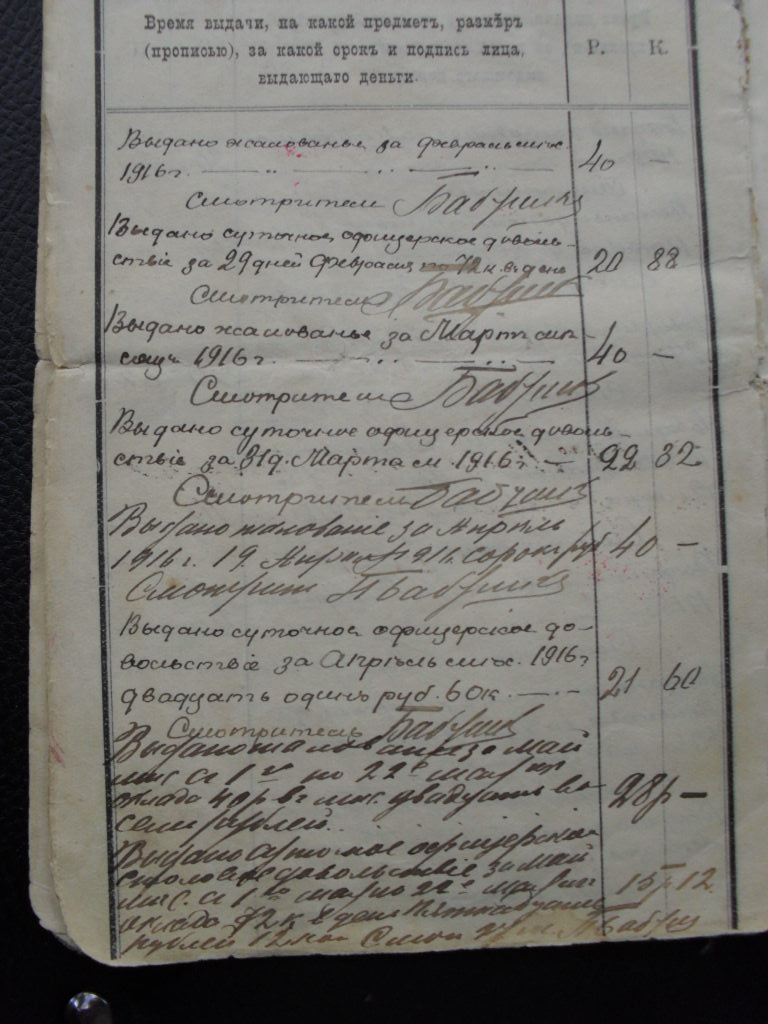 Время выдачи, на какой предметъ, размѣръ
(прописью), за какой срокъ и подпись лица,
выдающаго деньги.
Р. К.
Выдано жалованье за февраль мѣс.
1916 г. 40 —
Смотритель
Выдано суточное офицерское доволь-
ствіе за 29 дней Февраля по 72 к. въ день 20 88
Смотритель
Выдано жалованье за Мартъ мѣ-
сяцъ 1916 г. 40 —
Смотритель
Выдано суточное офицерское доволь-
ствіе за 31 д. Марта м 1916 г. — 22 32
Смотритель
Выдано жалованіе за Апрѣль
1916 г. 19 Апрѣля 1916 сорокъ руб 40 —
Смотрит
Выдано суточное офицерское до-
вольствіе за Апрѣль мѣс. 1916 г
двадцать одинъ руб. 60 к. 21 60
Смотритель
Выдано жалованіе за май
мѣс. съ 1го по 22е мая
оклада 40 р въ мѣс. двадцать во
семь рублей 28 р —
Выдано суточное офицерское
столовое довольствіе за май
мѣс. съ 1го мая по 22е мая
оклада 72 к въ день Пятнадцать 15 р 12
рублей 12 коп Смот